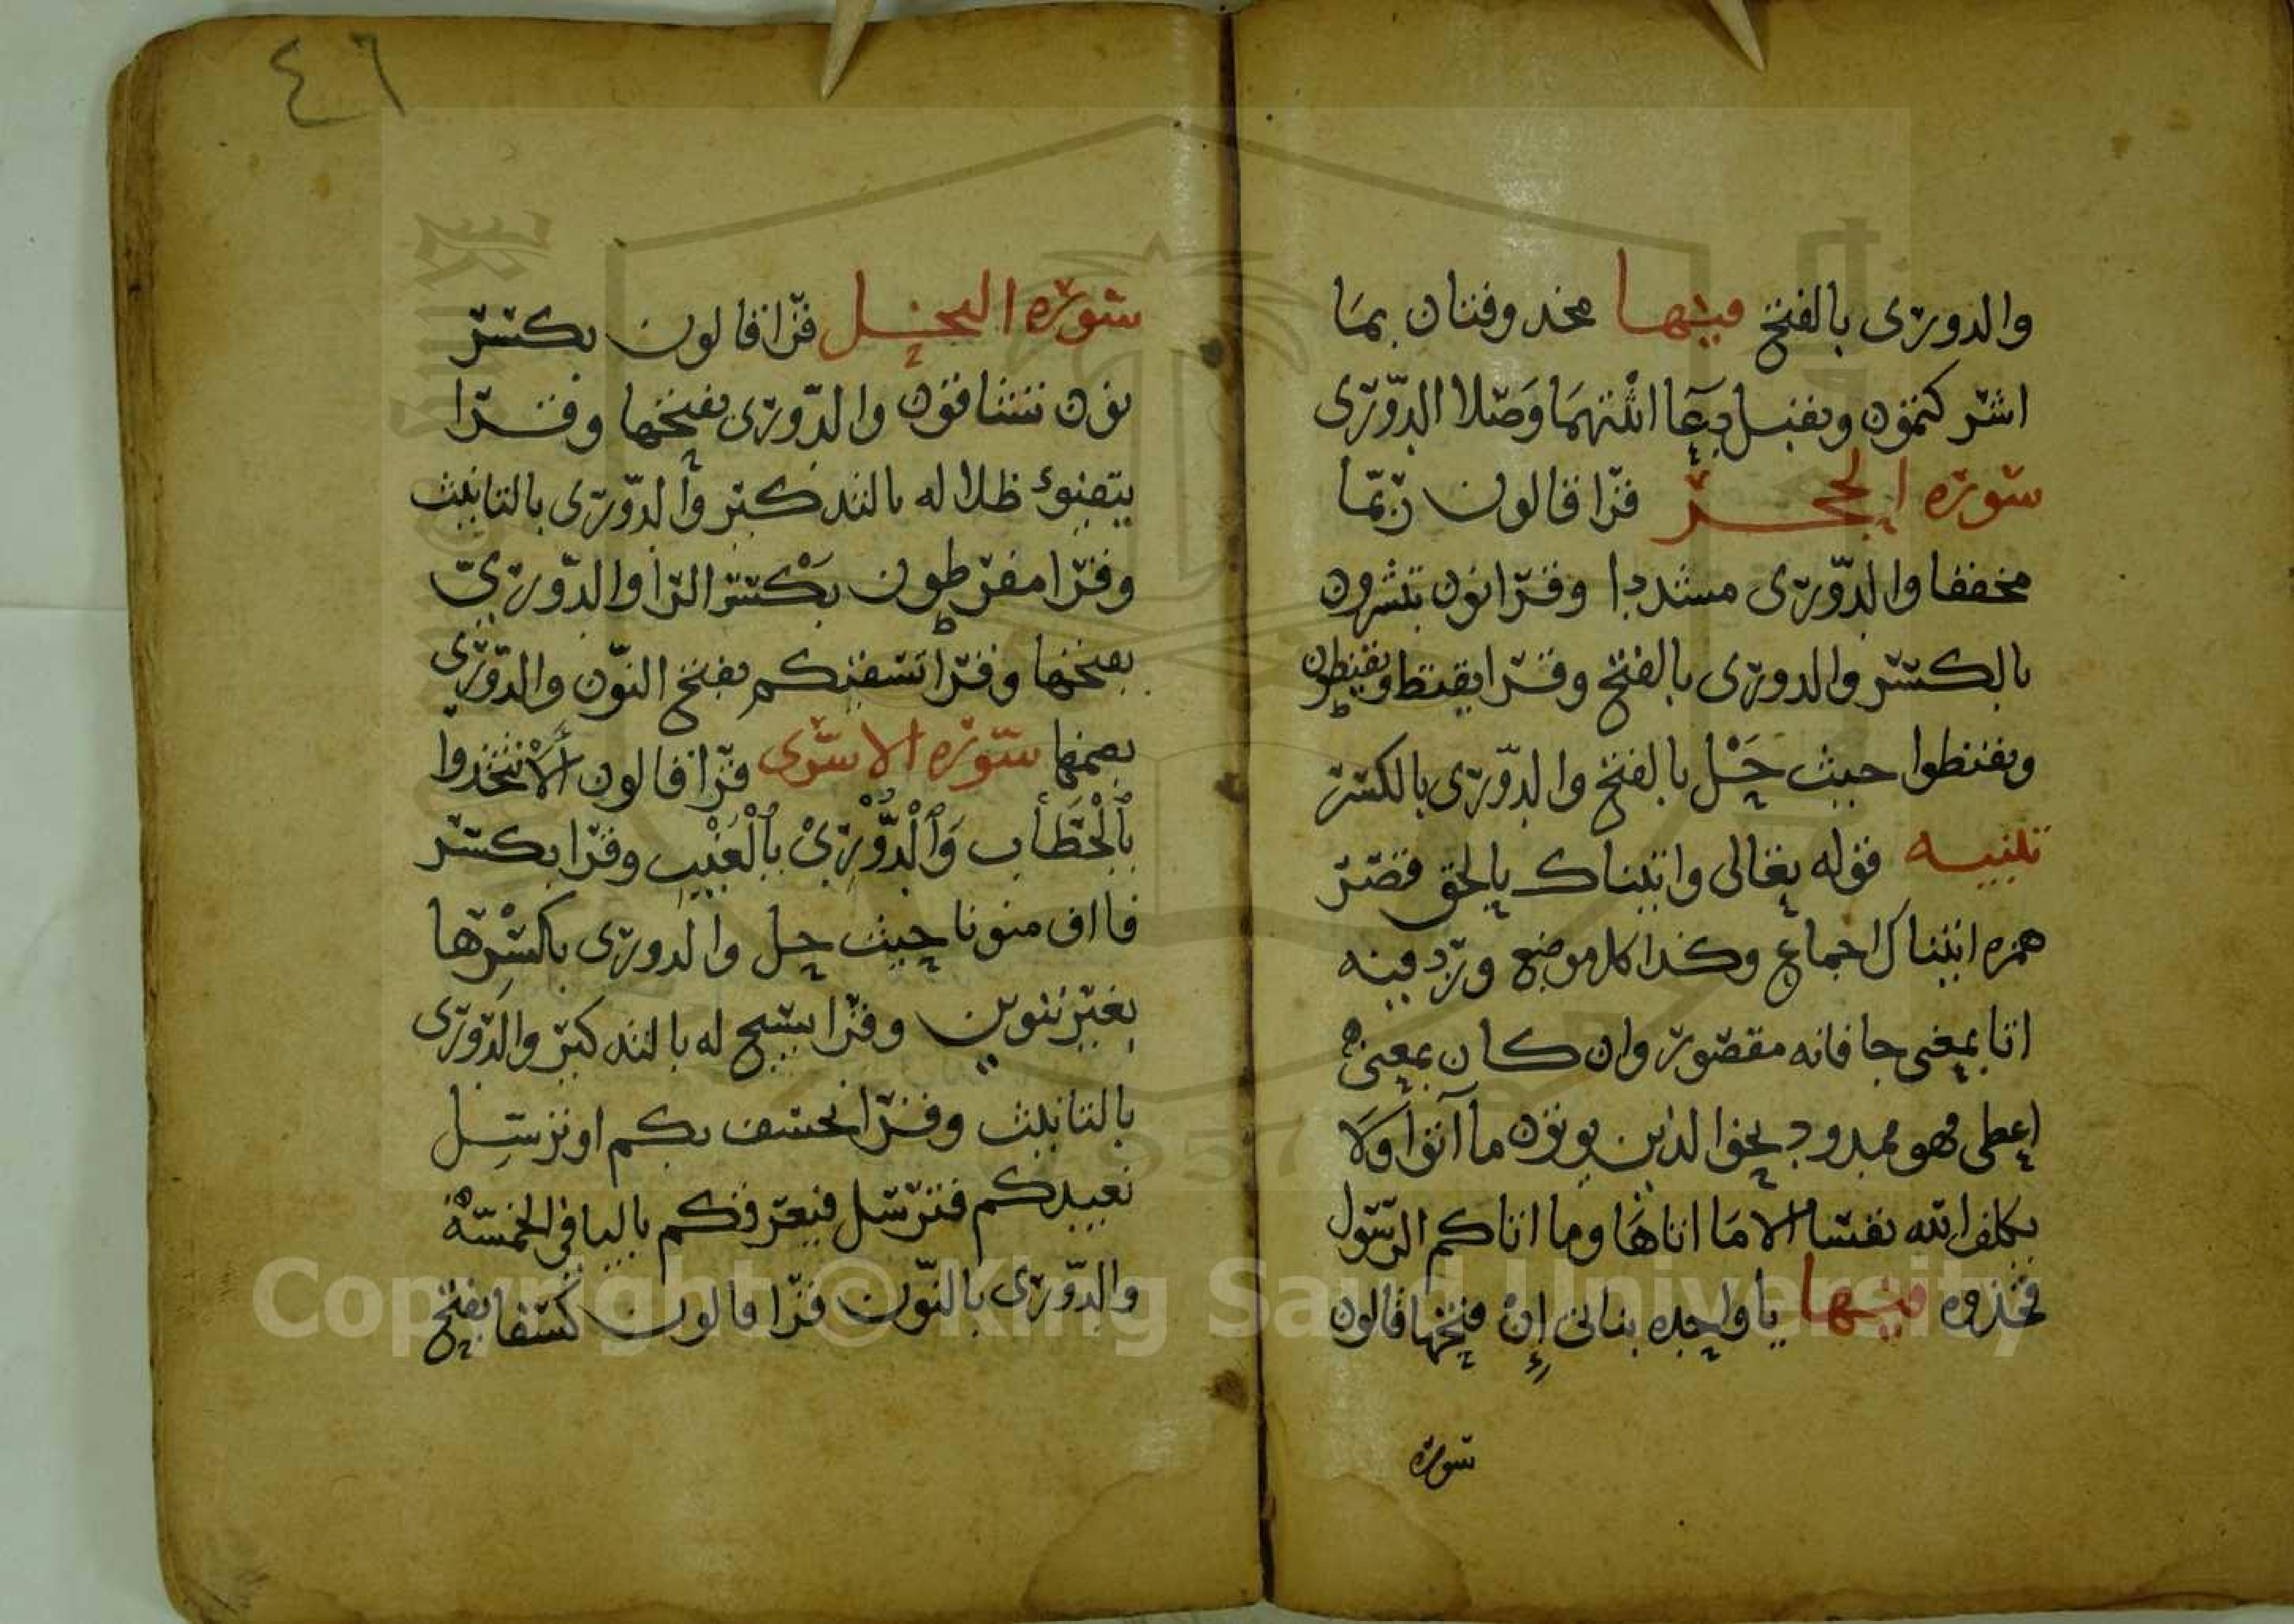 والدورى بالفتح فيها محذوفتان بما
اشركتمون وتقبل دعآ اثبتهما وصلا الدورى
سورة الحجر قرا قالون ربما
مخففا والدورى مشددا وقرا نون تبشرون
بالكسر والدورى بالفتح وقرا يقنط ويقنطون
وتقنطوا حيث حل بالفتح والدورى بالكسر
تنبيه قوله تعالى واتيناك بالحق قصر
همزه اتيناك اجماع وكذا كل موضع ورد فيه
اتا بمعنى جا فانه مقصور وان كان بمعنى
اعطى فهو ممدود نحو الذين يوتون ما آتوا ولا
يكلف الله نفسا الا ما اتاها وما اتاكم الرسول
فخذوه فيها يا واحده بناتى إن فتحها قالون
سورة
٤٦
سورة النحل قرا قالون بكسر
نون تشاقون والدورى بفتحها وقرا
يتفيؤ ظلاله بالتذكير والدورى بالتانيث
وقرا مفرطون بكسر الرا والدورى
بفتحها وقرا نسقيكم بفتح النون والدورى
بضمها سورة الاسرى قرا قالون ألا تتخذوا
بالخطاب والدورى بالغيب وقرا بكسر
فا اف منونا حيث حل والدورى بكسرها
بغير تنوين وقرا يسبح له بالتذكير والدورى
بالتانيث وقرا نخسف بكم او نرسل
نعيدكم فنرسل فنغرقكم باليا فى الخمسة
والدورى بالنون قرا قالون كسفا بفتح
Copyright © King Saud University
1957